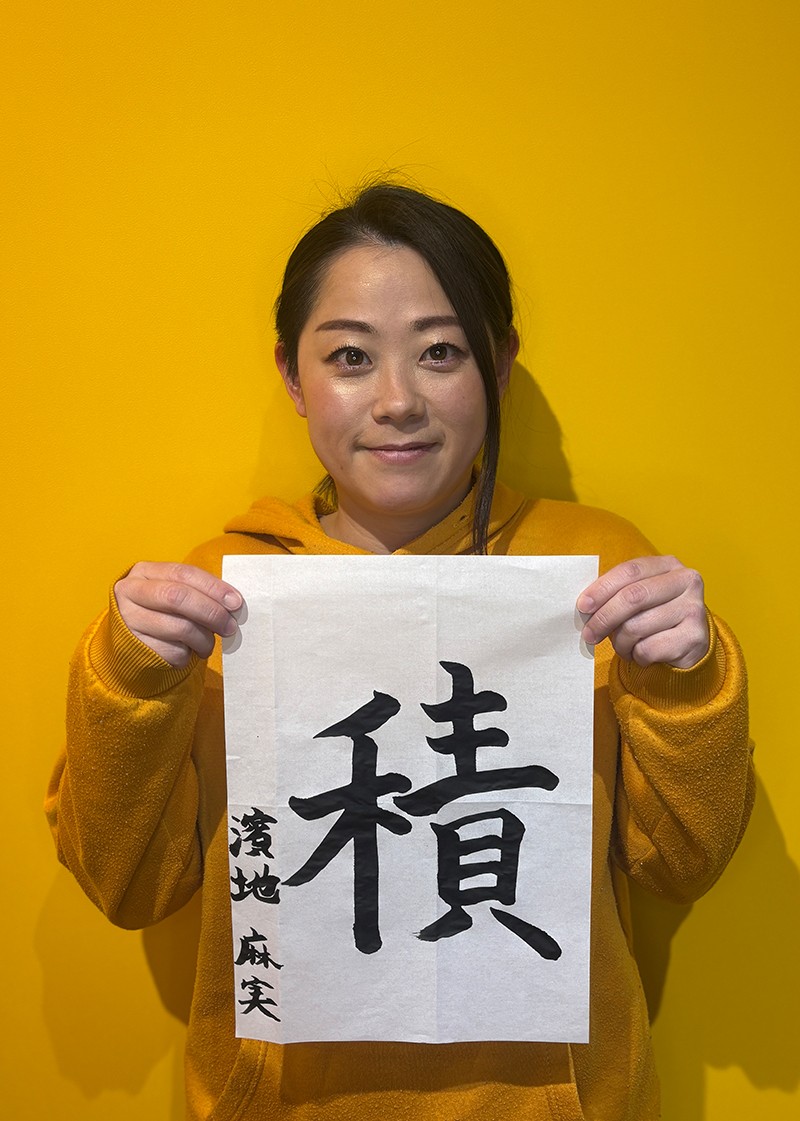 積
濱地 麻実